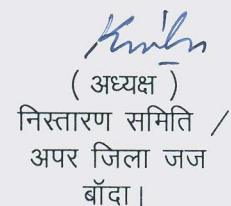 ( अध्यक्ष )
निस्तारण समिति /
अपर जिला जज
बॉदा।